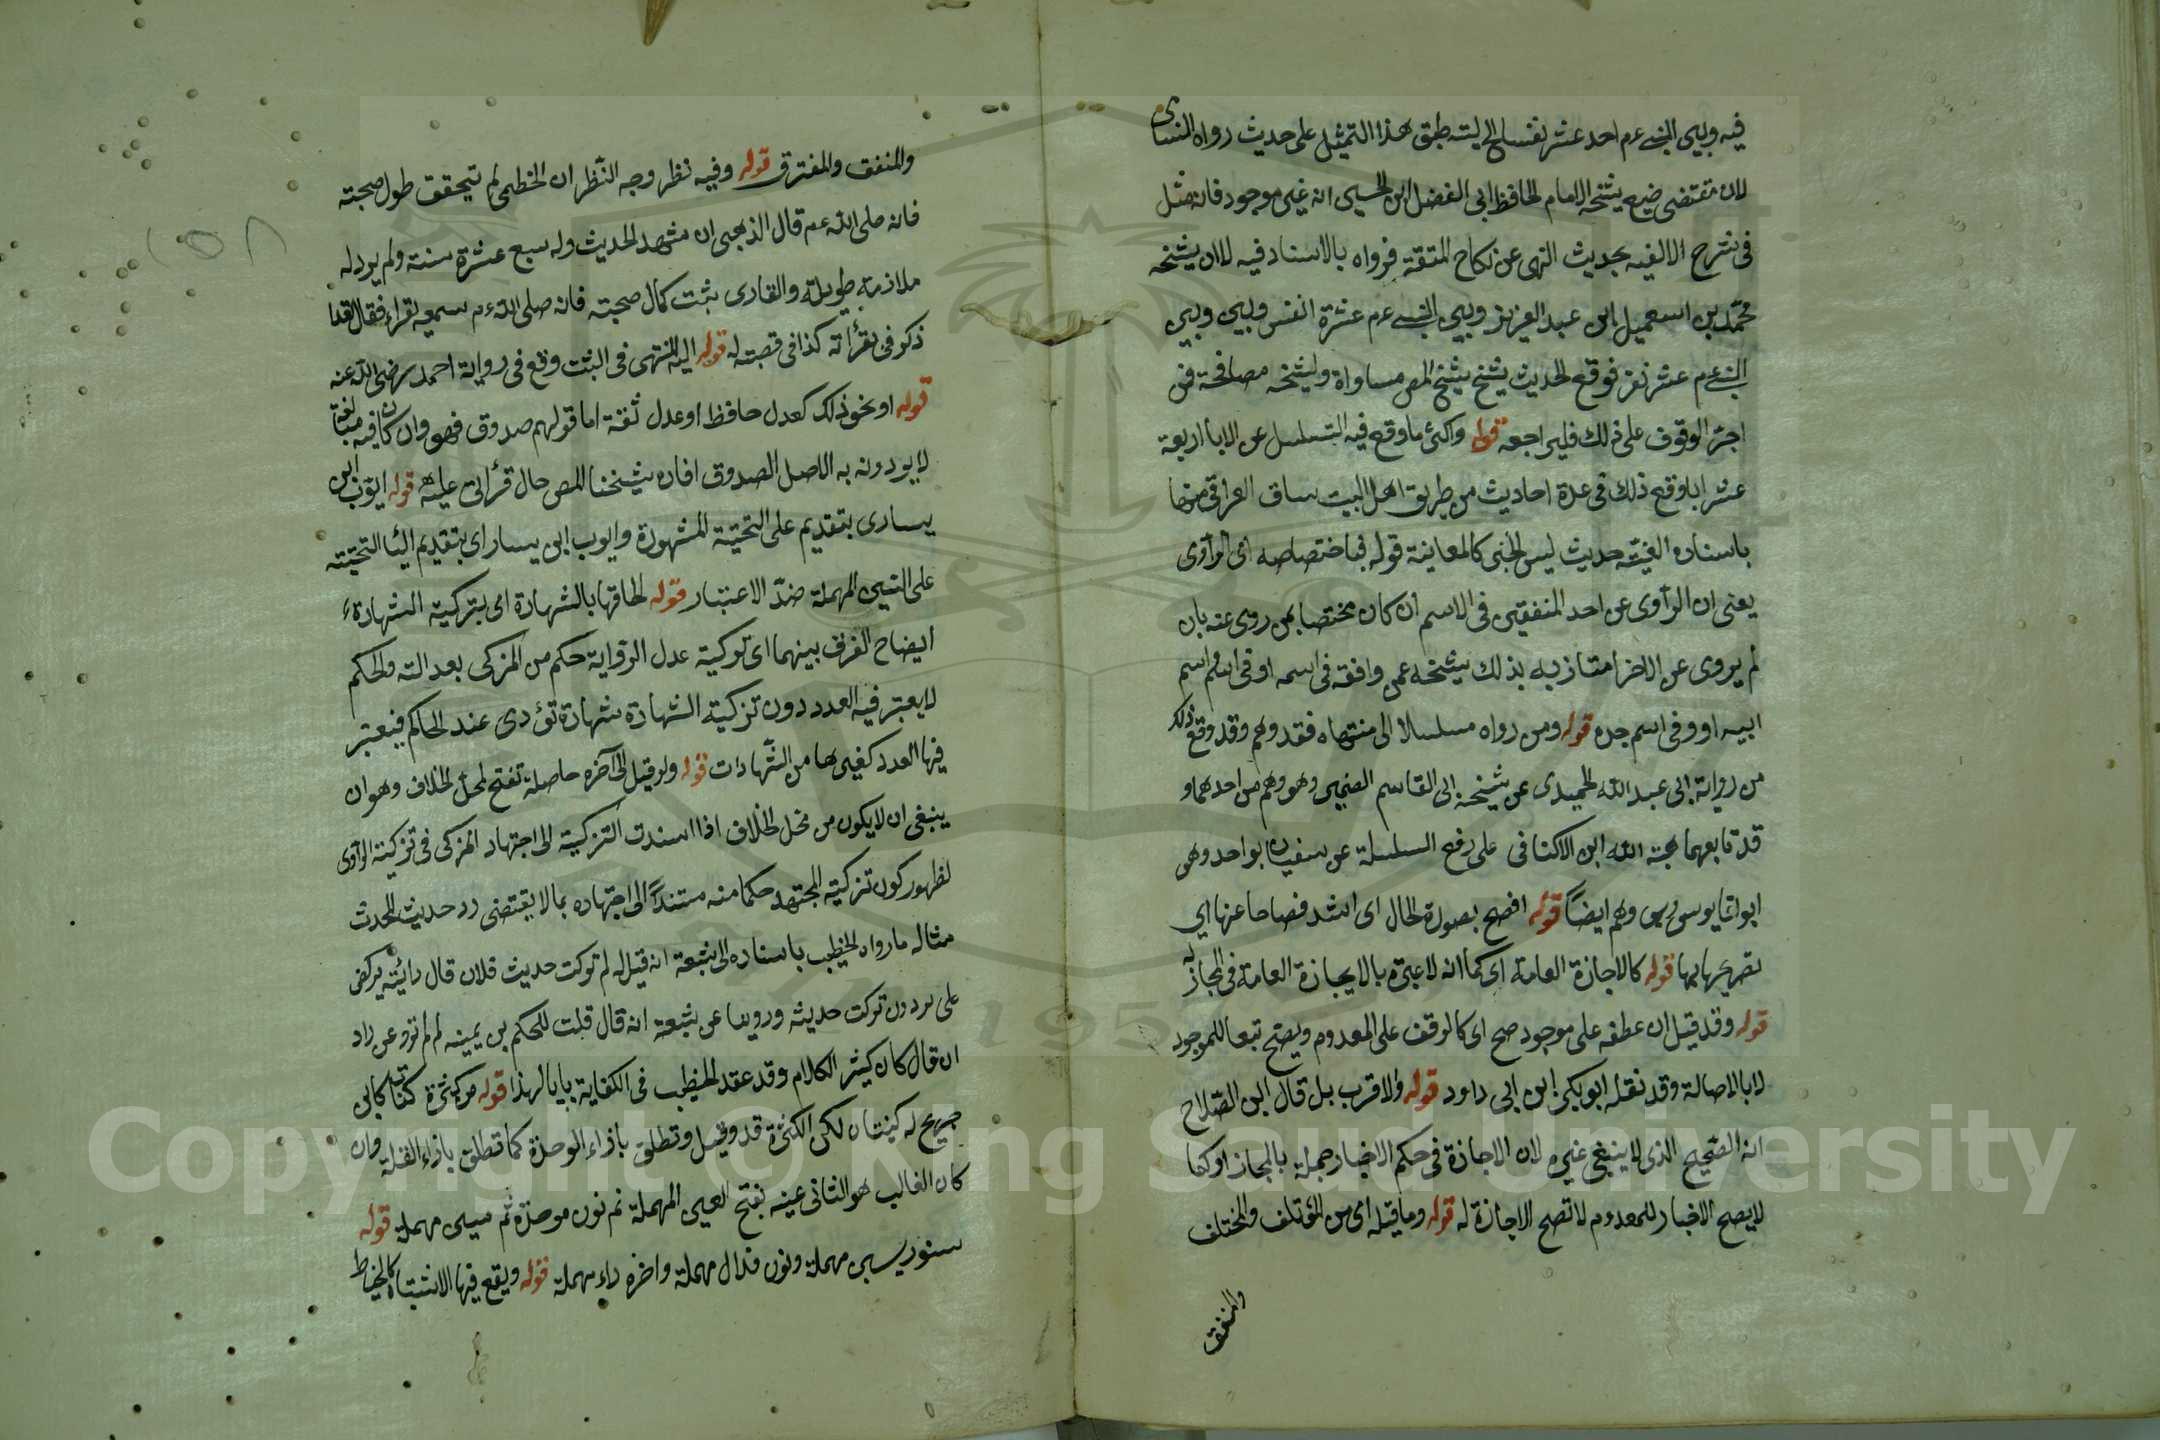 فيه وبين النبي عم احد عشر نفسا الي ليته طبق هذا التمثيل على حديث رواه النسائى
لان مقتضى ضيع شيخه الامام الحافظ ابى الفضل ابن الحسين انه غير موجود فانه مثل
فى شرح الالفيه بحديث النهى عن نكاح المتعة فرواه بالاسناد فيه لان شيخه
محمد بن اسمعيل ابن عبد العزيز وبين النبي عم عشرة انفس وبين وبين
النبي عم عشر نفر فوقع الحديث شيخ شيخ المص مساواة ولشيخه مصافحة فمن
الوقوف على ذلك فليراجعه قوله واكثر ما وقع فيه التسلسل عن الابا اربعة
عشر ابا وقع ذلك فى عدة احاديث من طريق اهل البيت ساق العراقى منها
باسناده الفيته حديث ليس الخبر كالمعاينة قوله فباختصاصه اى الراوى
يعنى ان الراوى عن احد المتفقين فى الاسم ان كان مختصا بمن روى عنه بان
لم يروى عن الاخر امتاز به بذلك شيخه عمن وافقه فى اسمه او فى اسم واسم
ابيه او وفى اسم جده قوله ومن رواه مسلسلا الى منتهاه فقد وهم وقد وقع ذلك
من رواية ابى عبد الله الحميدى عن شيخه ابى القاسم وهو وهم من احدهما و
قد تابعهما هبة الله ابن الاكفانى على رفع السلسلة عن سفيان ابو احد وهى
وهم ايضا قوله افصح بصورة الحال اى اشد فصاحا عنها اي
تصريحا بها قوله كالاجازة العامة اى كما انه لا عبرة بالايجازة العامة فى المجاز له
قوله وقد قيل ان عطفه على موجود صح اى كالوقف على المعدوم ويصح تبعا للموجود
لا بالاصالة وقد نقله ابو بكر ابن ابى داود قوله والاقرب بل قال ابن الصلاح
انه الصحيح الذى لا ينبغى غيره لان الاجازة فى حكم الاخبار جملة بالمجاز او كما
لا يصح الاخبار للمعدوم لا تصح الاجازة له قوله وما قيله اى من المؤتلف والمختلف
والمتفق
والمتفق والمفترق قوله وفيه نظر وجه النظر ان الخطمى لم تتحقق طول صحبته
فانه صلى الله عم قال الذهبى ان شهد الحديث وله سبع عشرة سنة ولم يرد له
ملازمة طويلة والقارى بثبت كمال صحبته فانه صلى الله عم سمعه يقراء فقال لقد
ذكر فى بقرأته كذا فى قصته له قوله اليه المنتهى فى الثبت وقع فى رواية احمد رضى الله عنه
قوله او نحو ذلك كعدل حافظ او عدل ثقة اما قولهم صدوق فهو وان كان فيه مبالغة
لا يريدونه به الاصل الصدوق افاده شيخنا المص حال قرأتى عليه قوله ايوب ابن
يسارى بتقديم على التحتية المشهورة وايوب ابن يسار اى بتقديم اليا التحتية
على السين المهملة ضد الاعتبار قوله لحاقها بالشهادة اى بتزكية الشهادة
ايضاح الفرق بينهما اى تزكية عدل الرواية حكم من المزكى بعدالته والحكم
لا يعتبر فيه العدد دون تزكية الشهادة شهادة تؤدى عند الحاكم فيعتبر
فيها العدد كغيرها من الشهادات قوله ولو قيل الى آخره حاصله تفتح لمحل الخلاف وهو ان
ينبغى ان لا يكون من محل الخلاف اذا اسندت التزكية الى اجتهاد المزكى فى تزكية الراوى
لظهور كون تزكية المجتهد حكما منه مستندا الى اجتهاده بما لا يقتضى رد حديث المحدث
مثاله ما رواه الخطيب باسناده الى شعبة انه قيل له لم تركت حديث فلان قال رايته يركض
على برذون تركت حديثه وروينا عن شعبة انه قال قلت للحكم بن يمينه لم لم تروعن زاد
ان قال كان كثير الكلام وقد عقد الخطيب فى الكفاية بابا لهذا قوله كثرة كناه كابن
جريح له كنيتان لكن الكثرة قد وقيل وتطلق بازاء الوحدة كما تطلق بازاء القلة وان
كان الغالب هو الثانى عينه بفتح العين المهملة ثم نون موحدة ثم سين مهملة قوله
سنور بسين مهملة ونون فدال مهملة واخره راء مهملة قوله ويقع فيها الاشتباه كالخياط
١٥٨
Copyright © King Saud University
1957